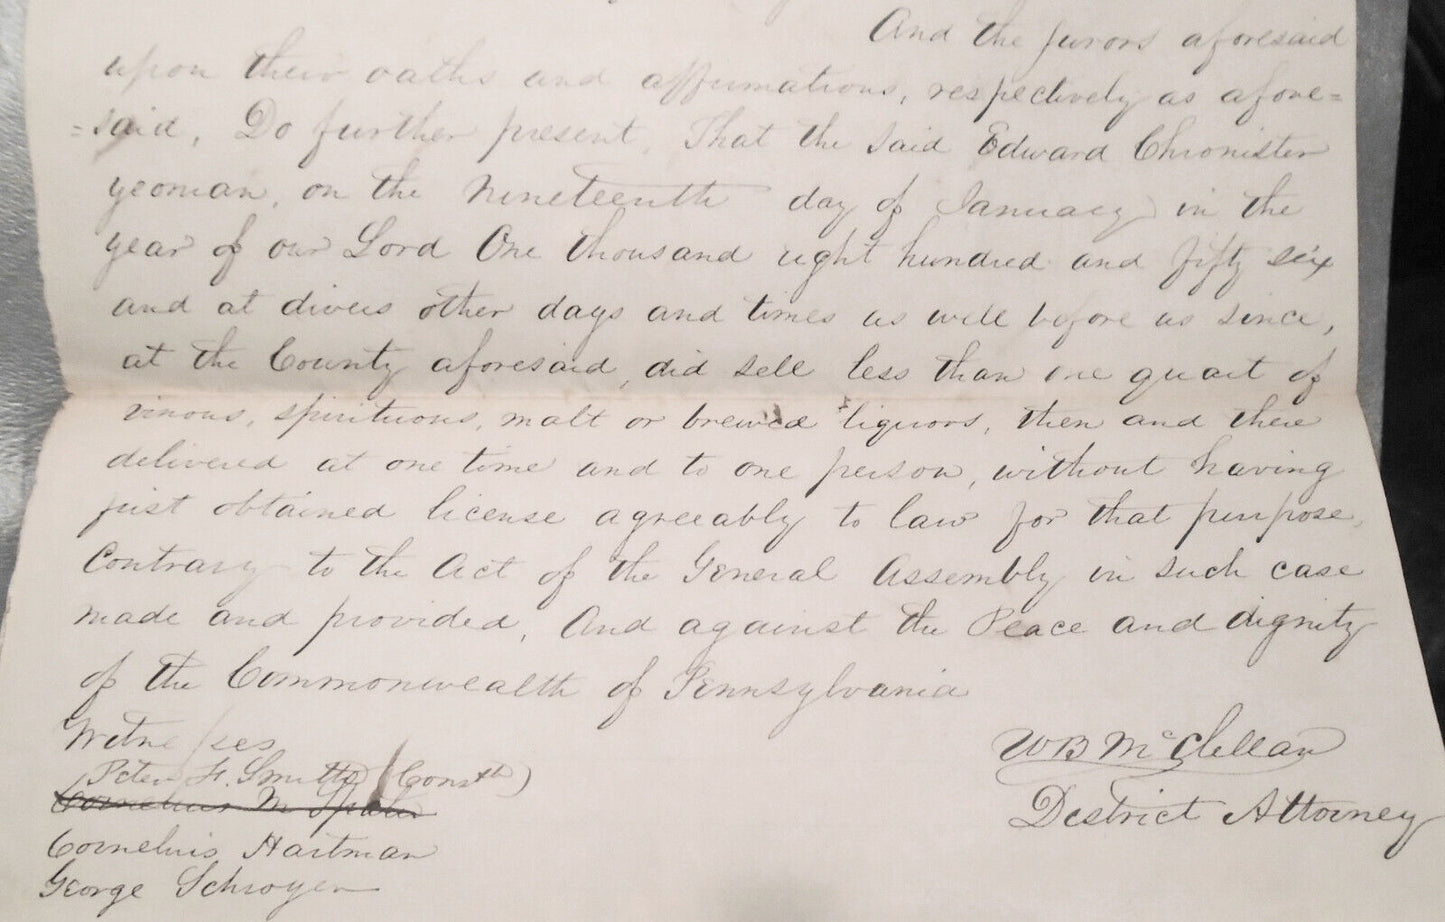 And the jurors aforesaid
upon their oaths and affirmations, respectively as afore=
=said, Do further present, That the said Edward Chronister
yeoman, on the Nineteenth day of January in the
year of our Lord One thousand eight hundred and fifty six
and at divers other days and times as well before as since,
at the County aforesaid, did sell less than one quart of
vinous, spirituous, malt or brewed liquors, then and there
delivered at one time and to one person, without having
first obtained license agreeably to law for that purpose,
Contrary to the Act of the General Assembly in such case
made and provided, And against the Peace and dignity
of the Commonwealth of Pennsylvania
Witnesses
WB McClellan
(Peter F. Smith (Const)
Cornelius M
District Attorney
Cornelius Hartman
George Schroyer